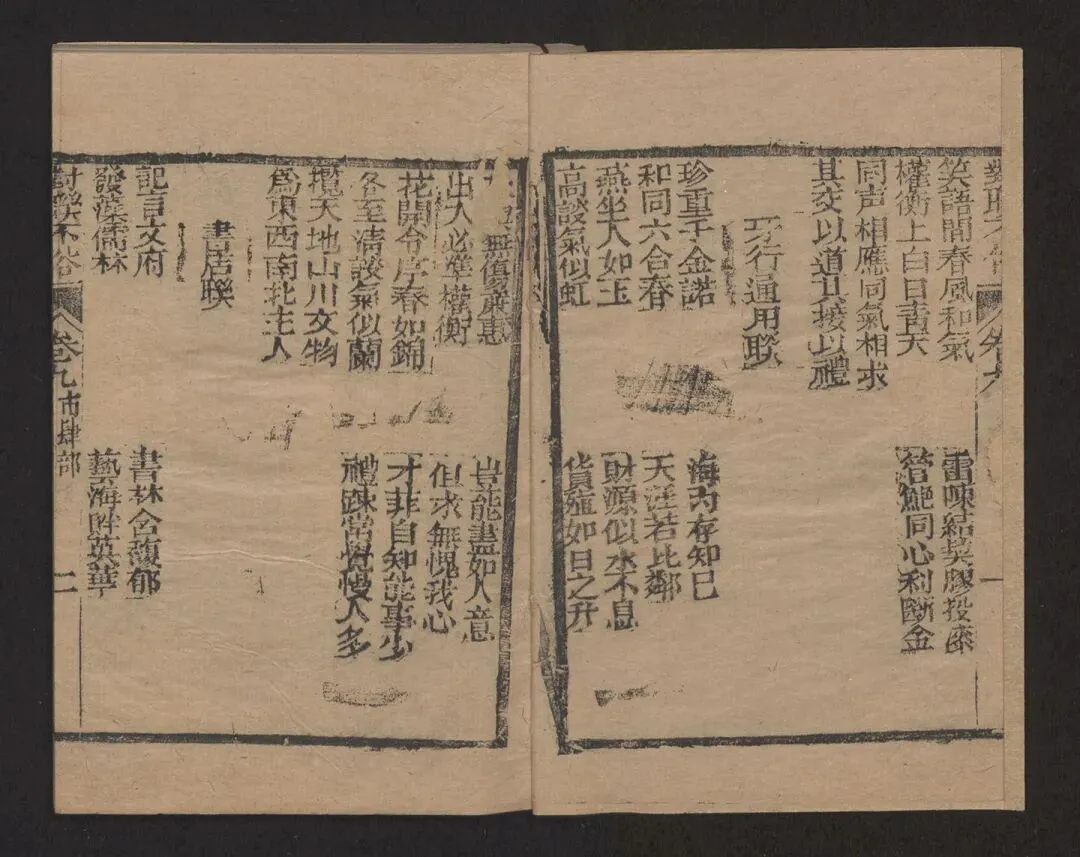 卷九
一
笑語間春風和氣
雷陳結契膠投漆
權衡上白日青天
管鮑同心利斷金
同声相應同氣相求
其交以道其接以禮
行通用联
珍重千金諾
海內存知己
和同六合春
天涯若比鄰
燕坐人如玉
財源似水不息
高談氣似虹
貨殖如日之升
無傷廉惠
豈能盡如人意
出入必準權衡
但求無愧我心
花開令序春如錦
才非自知能事少
客至清談氣似蘭
禮疎常覺慢人多
攬天地山川文物
爲東西南北主人
書居联
記言文府
書林含馥郁
發藻儒林
藝海 英華
對联不俗
卷九市肆部
二